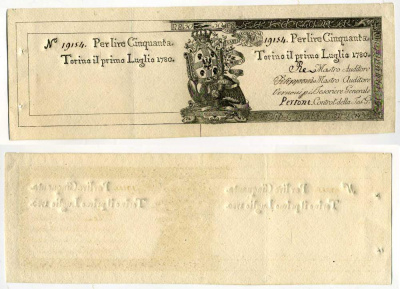 Nº 19154. Per lire Cinquanta.
Torino il primo Luglio 1780.
19154. Per lire Cinquanta.
Torino il primo Luglio 1780.
Mastro Auditore
Mastro Auditore
Tesoriere Generale
Perroni Control. della